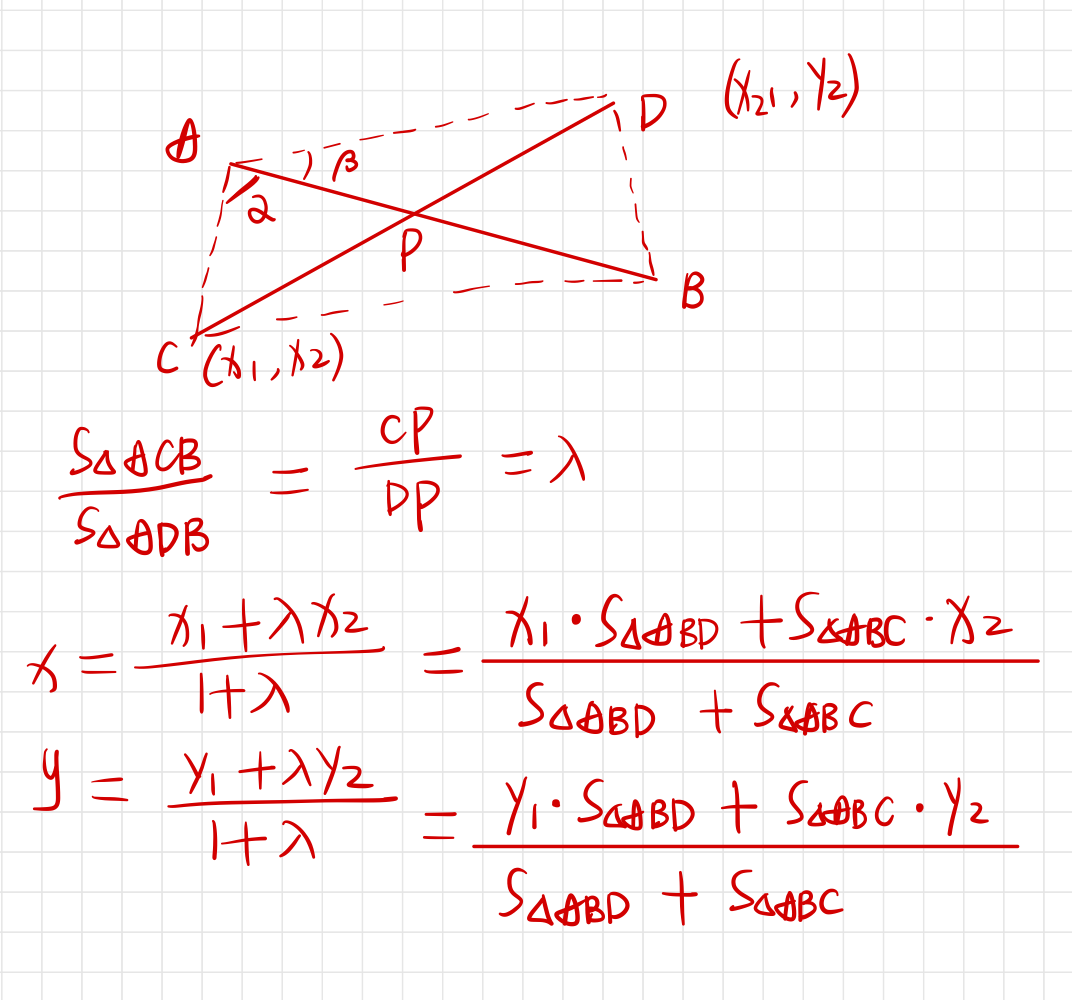 A
D
(x₂₁, y₂)
β
2
P
B
C (x₁, x₂)
S△ACB / S△ADB = CP / DP = λ
x = (x₁ + λx₂) / (1 + λ) = (x₁ · S△ABD + S△ABC · x₂) / (S△ABD + S△ABC)
y = (y₁ + λy₂) / (1 + λ) = (y₁ · S△ABD + S△ABC · y₂) / (S△ABD + S△ABC)